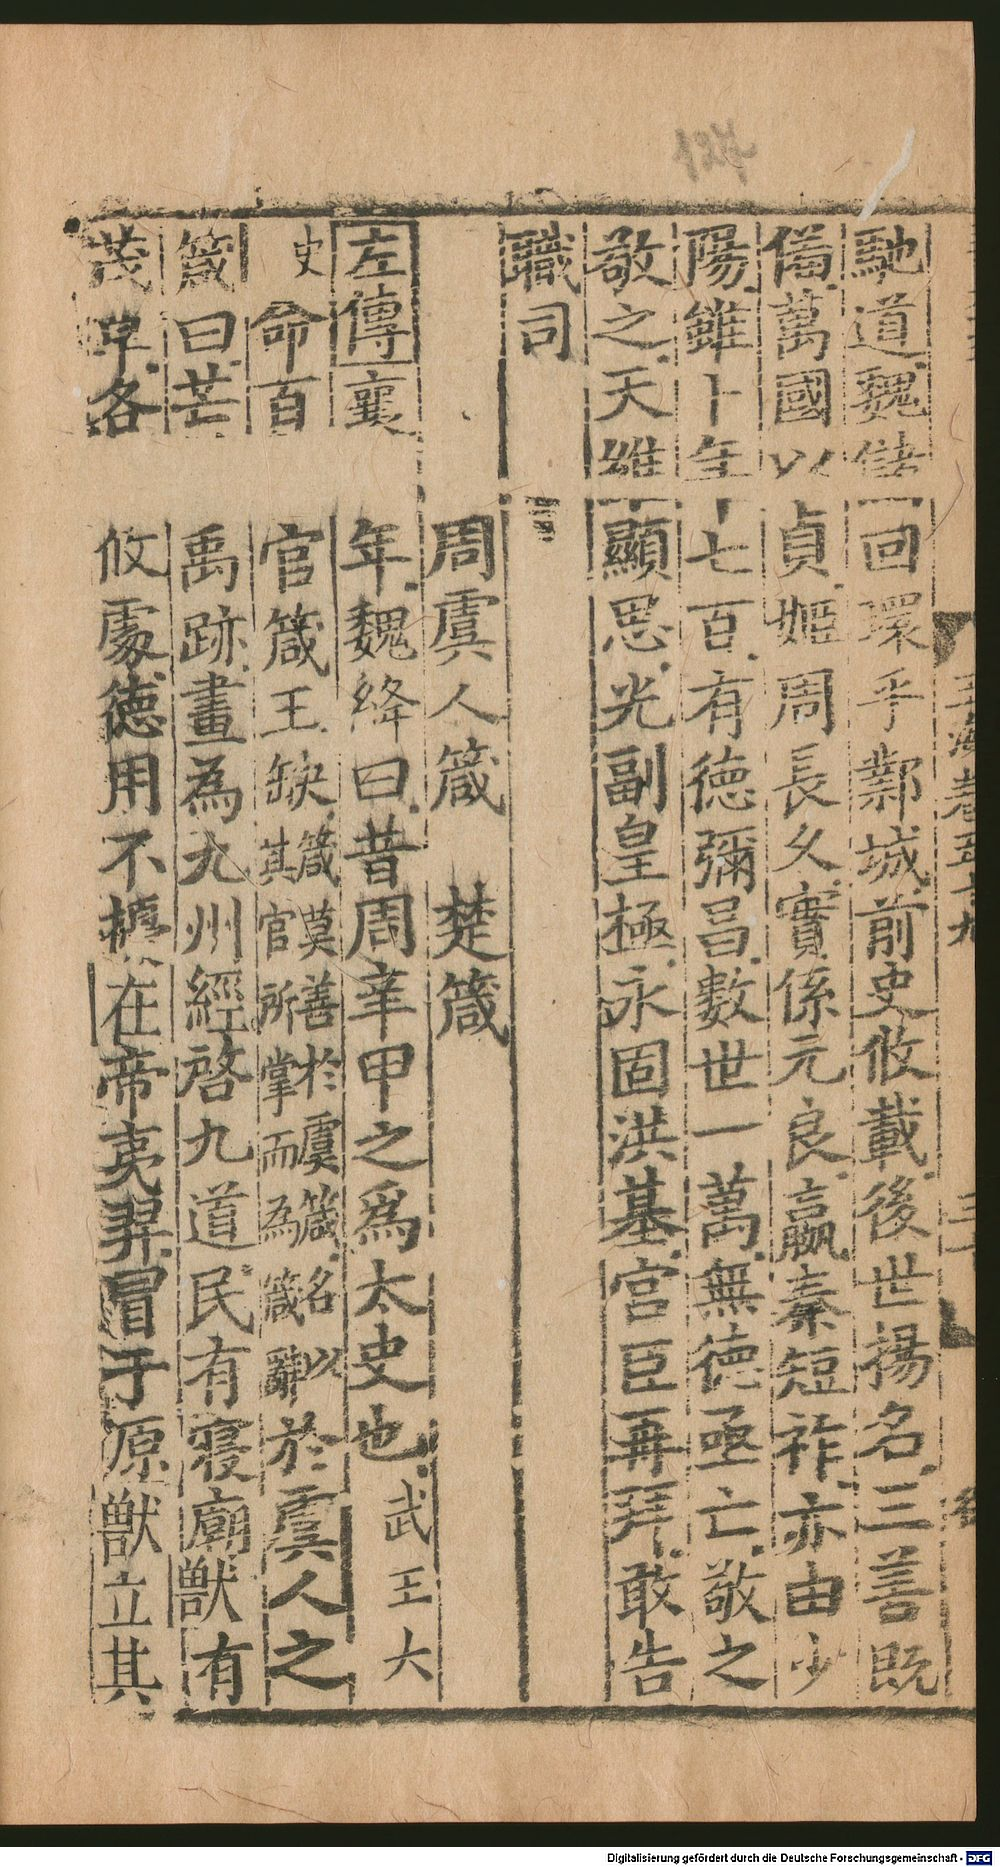 馳道魏儲回環乎鄴城前史攸載後世揚名三善既
備萬國以貞姬周長久實係元良嬴秦短祚亦由少
陽雖卜年七百有德彌昌數世一萬無德亟亡敬之
敬之天維顯思光副皇極永固洪基宮臣再拜敢告
職司
周虞人箴 楚箴
左傳襄 年魏絳曰昔周辛甲之爲太史也武王大
史命百官箴王缺箴莫善於虞箴名以其官所掌而為箴辭於虞人之
箴曰芒禹跡畫為九州經啓九道民有寢廟獸有
茂草各攸處德用不擾在帝夷羿冒于原獸立其
Digitalisierung gefördert durch die Deutsche Forschungsgemeinschaft - DFG